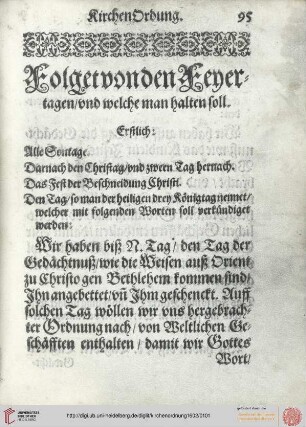 KirchenOrdnung. 95
Folget von den Feyer-
tagen/vnd welche man halten soll.
Erstlich:
Alle Sontage.
Darnach den Christag/vnd zwen Tag hernach.
Das Fest der Beschneidung Christi.
Den Tag/so man der heiligen drey Königtag nennet/
welcher mit folgenden Worten soll verkündiget
werden:
Wir haben biß N. Tag/ den Tag der
Gedächtnuß/wie die Weisen auß Orient/
zu Christo gen Bethlehem kommen sind/
Ihn angebettet/vñ Ihm geschenckt. Auff
solchen Tag wöllen wir vns hergebrach-
ter Ordnung nach/von Weltlichen Ge-
schäfften enthalten/damit wir Gottes
Wort/
http://digi.ub.uni-heidelberg.de/diglit/kirchenordnung1603/0101